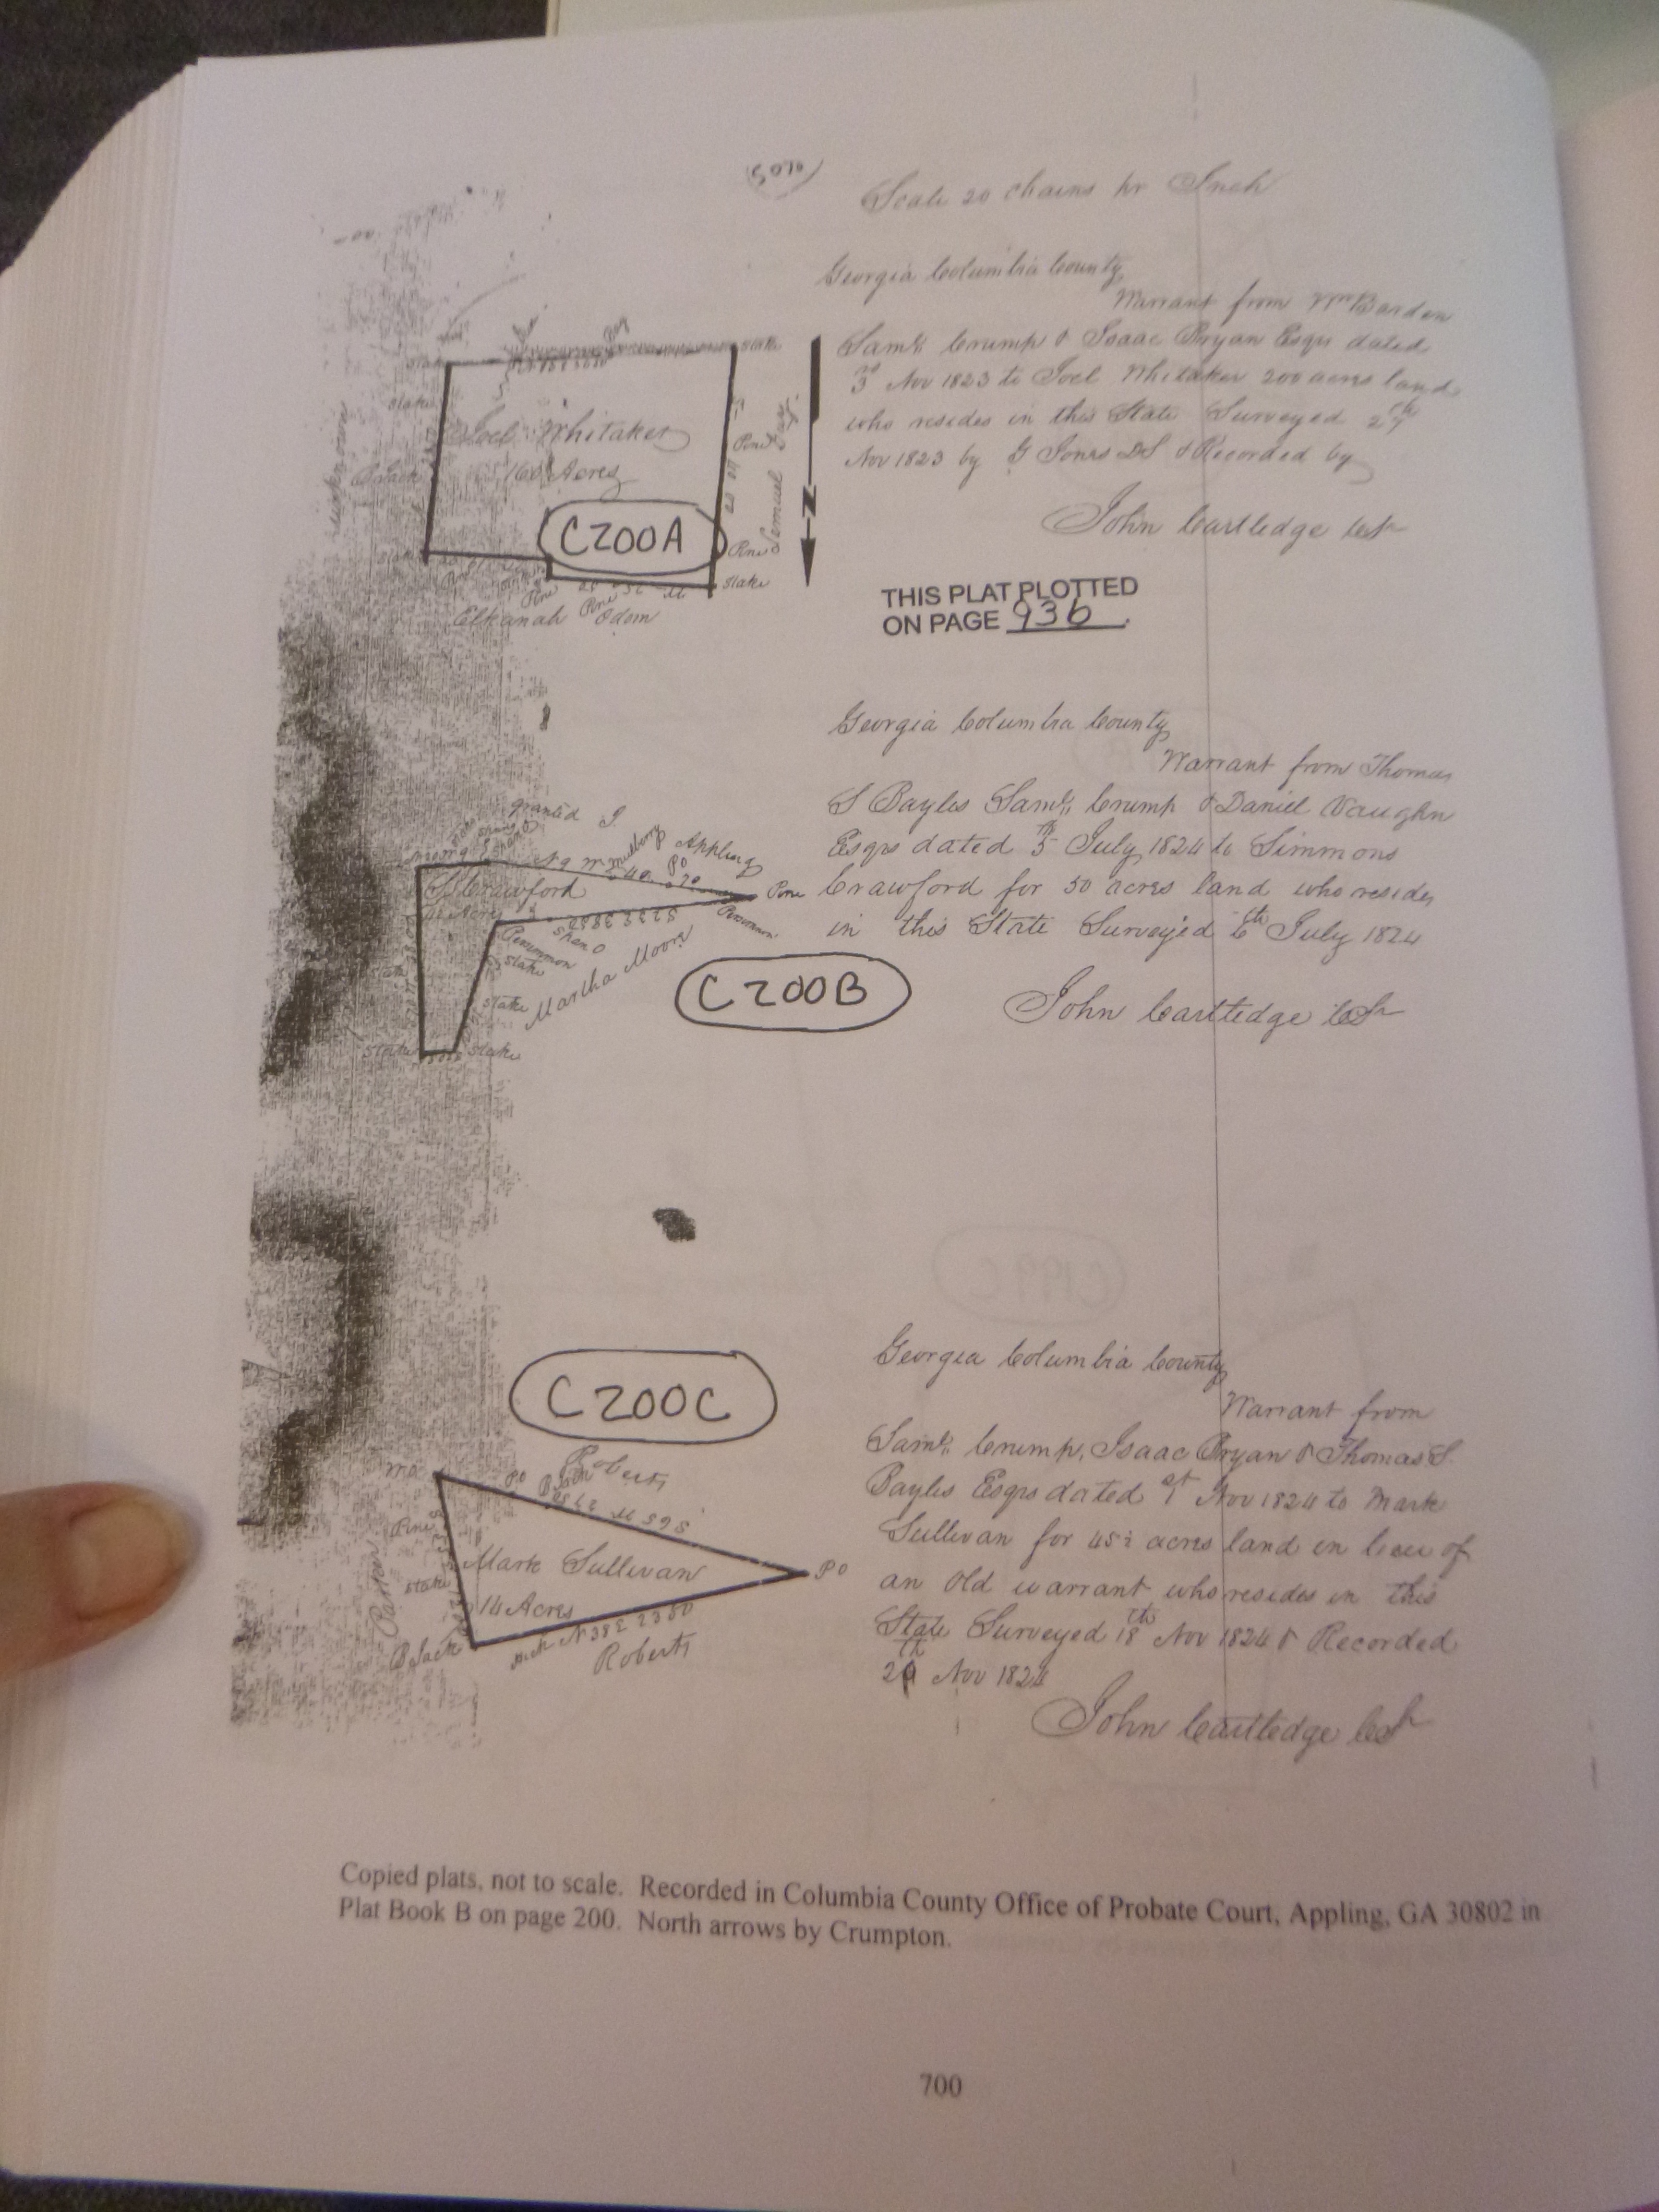 Scale 20 chains pr Inch
Georgia Columbia County
Warrant from Wm Barden
Saml. Crump & Isaac Bryan Esqrs dated
3rd Nov 1823 to Joel Whitaker 200 acres land
who resides in this State Surveyed 27th
Nov 1823 by G Jones DS & Recorded by
John Cartledge CS
THIS PLAT PLOTTED
ON PAGE 936.
Stake
Stake
Stake
unknown
Black
Joel Whitaker
160 Acres
Pine
Samuel
C200A
Pine
Stake
Stake
Pine
Pine
Elkanah Odom
N
Georgia Columbia County
Warrant from Thomas
S Bayles Saml. Crump & Daniel Vaughn
Esqrs dated 5th July 1824 to Simmons
Crawford for 50 acres land who resides
in this State Surveyed 6th July 1824
John Cartledge CS
granted
Mulberry Appling
PO
Pine
S Crawford
Persimmon
Persimmon
Stake
Martha Moore
Stake
Stake
Stake
Stake
C200B
C200C
Georgia Columbia County
Warrant from
Saml. Crump, Isaac Bryan & Thomas S.
Bayles Esqrs dated 1st Nov 1824 to Mark
Sullivan for 45½ acres land in lieu of
an Old warrant who resides in this
State Surveyed 18th Nov 1824 & Recorded
29th Nov 1824
John Cartledge CS
Roberts
PO
Black
Pine
Stake
Mark Sullivan
PO
14 Acres
Black
N38E 2350
Roberts
Copied plats, not to scale. Recorded in Columbia County Office of Probate Court, Appling, GA 30802 in
Plat Book B on page 200. North arrows by Crumpton.
700